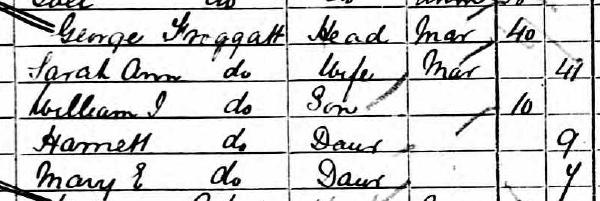 George Froggatt Head Mar 40
Sarah Ann do Wife Mar 41
William I do Son 10
Harriett do Daur 9
Mary E do Daur